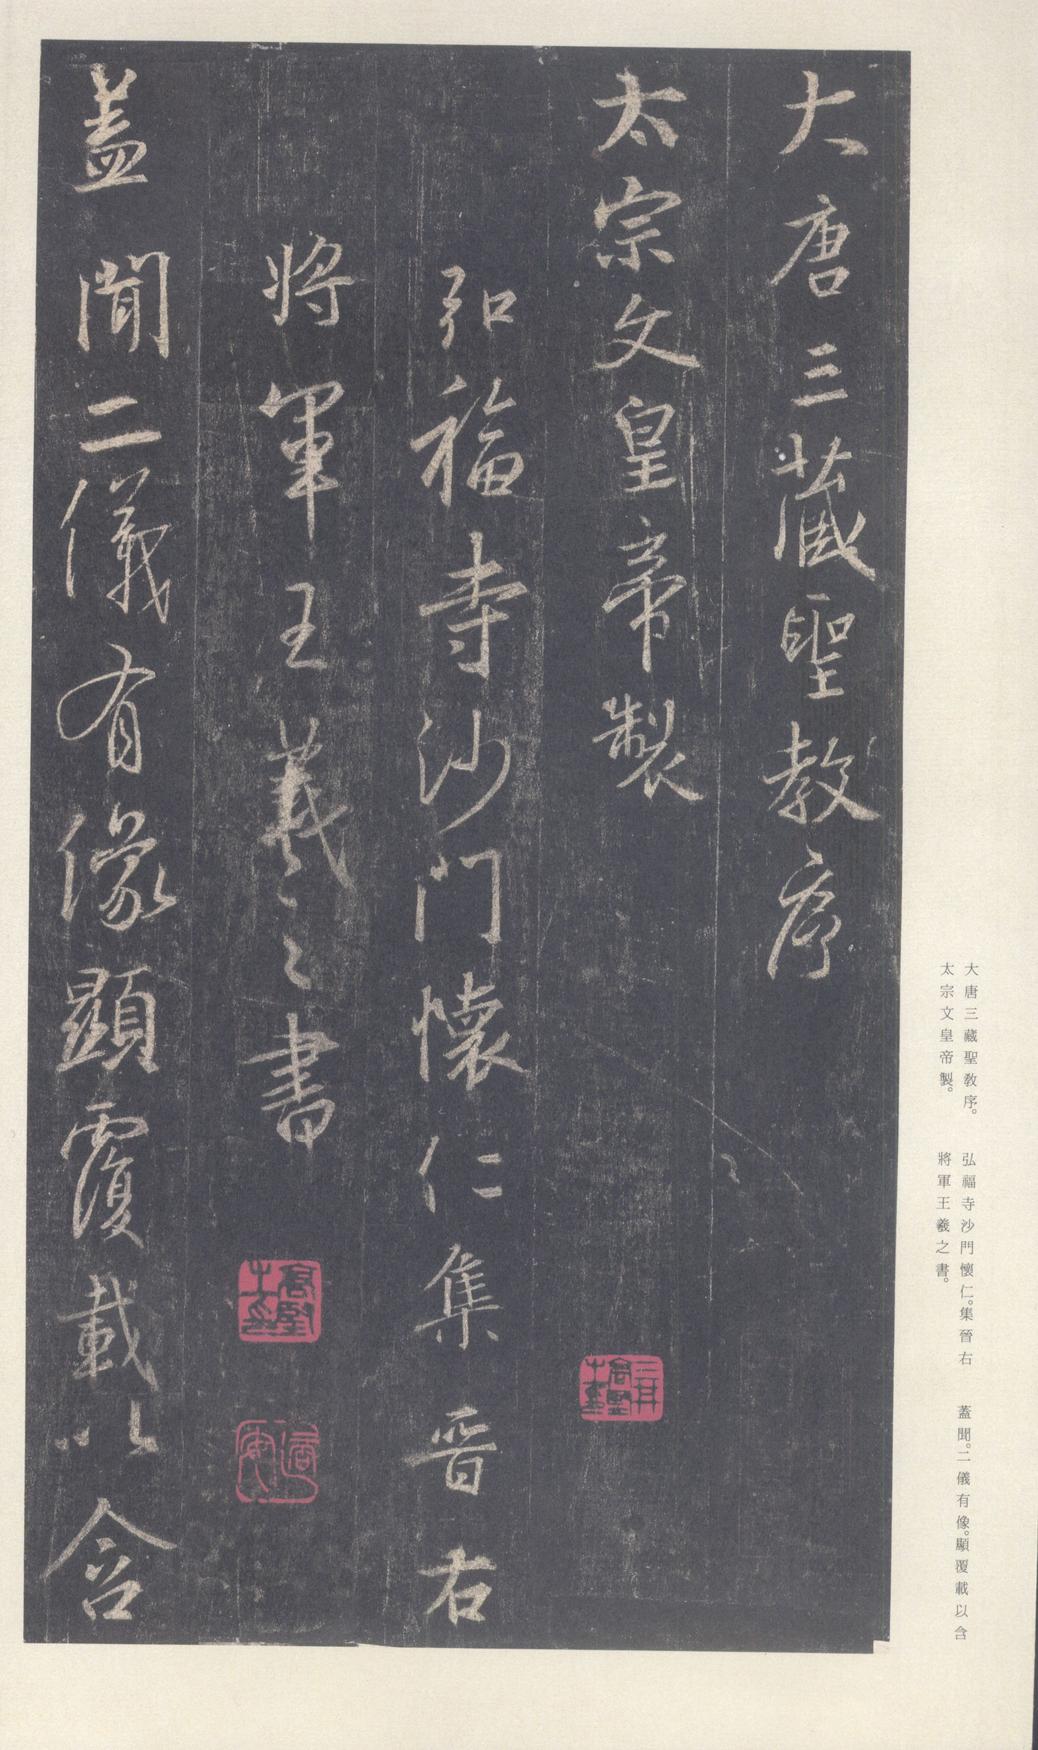 大唐三藏聖教序
太宗文皇帝製
弘福寺沙門懷仁集晉右
將軍王羲之書
蓋聞二儀有像顯覆載以含
大唐三藏聖教序。
太宗文皇帝製。
弘福寺沙門懷仁。集晉右
將軍王羲之書。
蓋聞。二儀有像。顯覆載以含